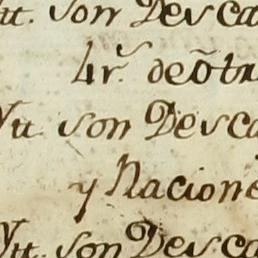 Ytt. son Desca
4r.ˢ de õtra
Ytt. son Desca
y Nacione
Ytt. son Desca